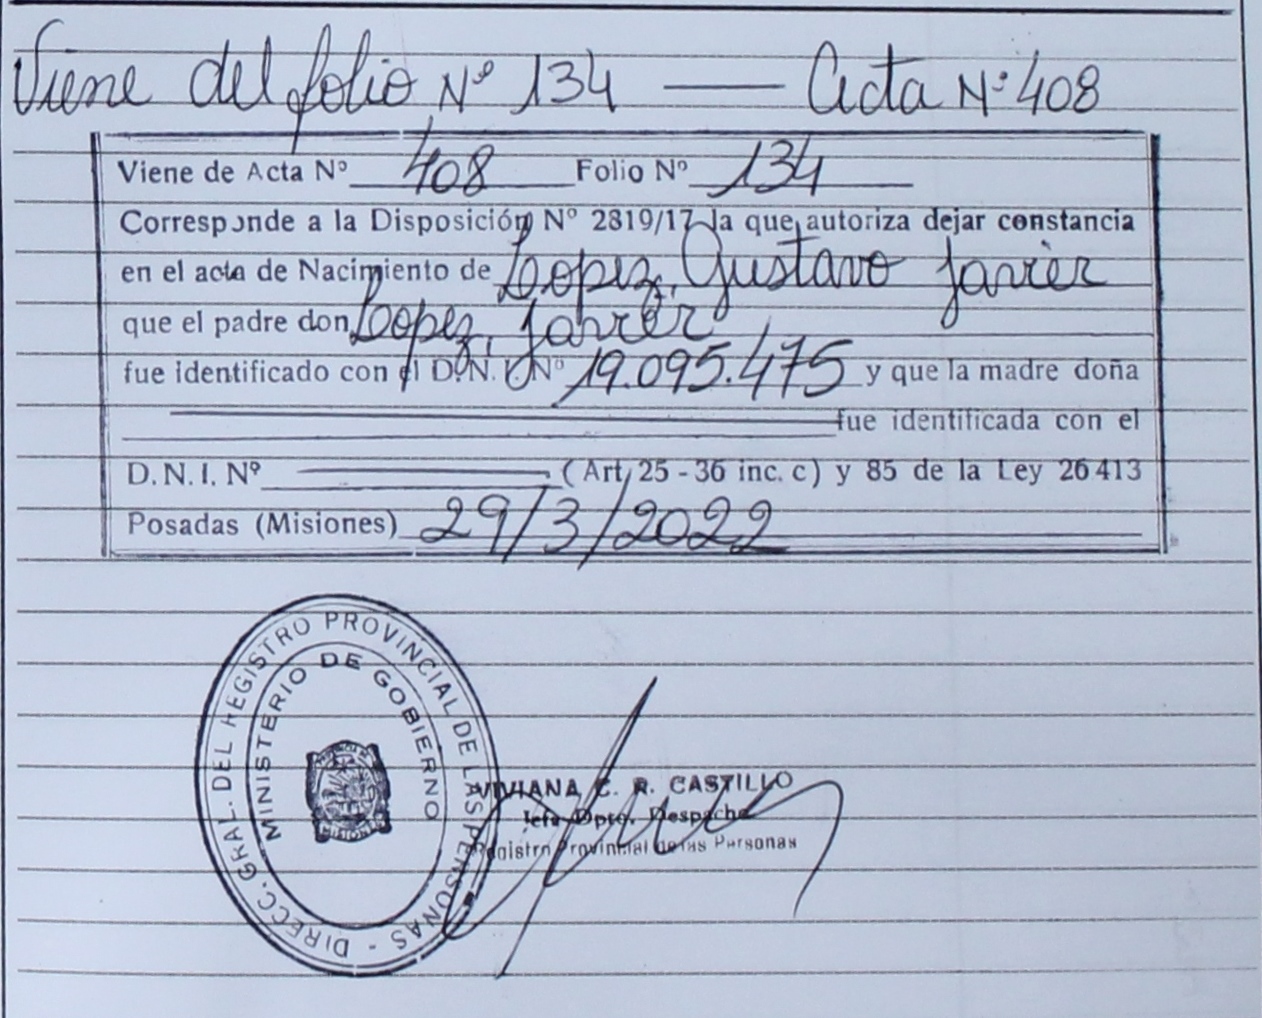 Viene del folio Nº 134 — Acta Nº 408
Viene de Acta Nº 408 Folio Nº 134
Corresponde a la Disposición Nº 2819/17 la que autoriza dejar constancia
en el acta de Nacimiento de Lopez, Gustavo Javier
que el padre don Lopez, Javier
fue identificado con el D.N.I. Nº 19.095.475 y que la madre doña
fue identificada con el
D.N.I. Nº (Art. 25 - 36 inc. c) y 85 de la Ley 26413
Posadas (Misiones) 29/3/2022
DIRECC. GRAL. DEL REGISTRO PROVINCIAL DE LAS PERSONAS -
MINISTERIO DE GOBIERNO
MISIONES
VIVIANA C. R. CASTILLO
Jefa Dpto. Despacho
Registro Provincial de las Personas